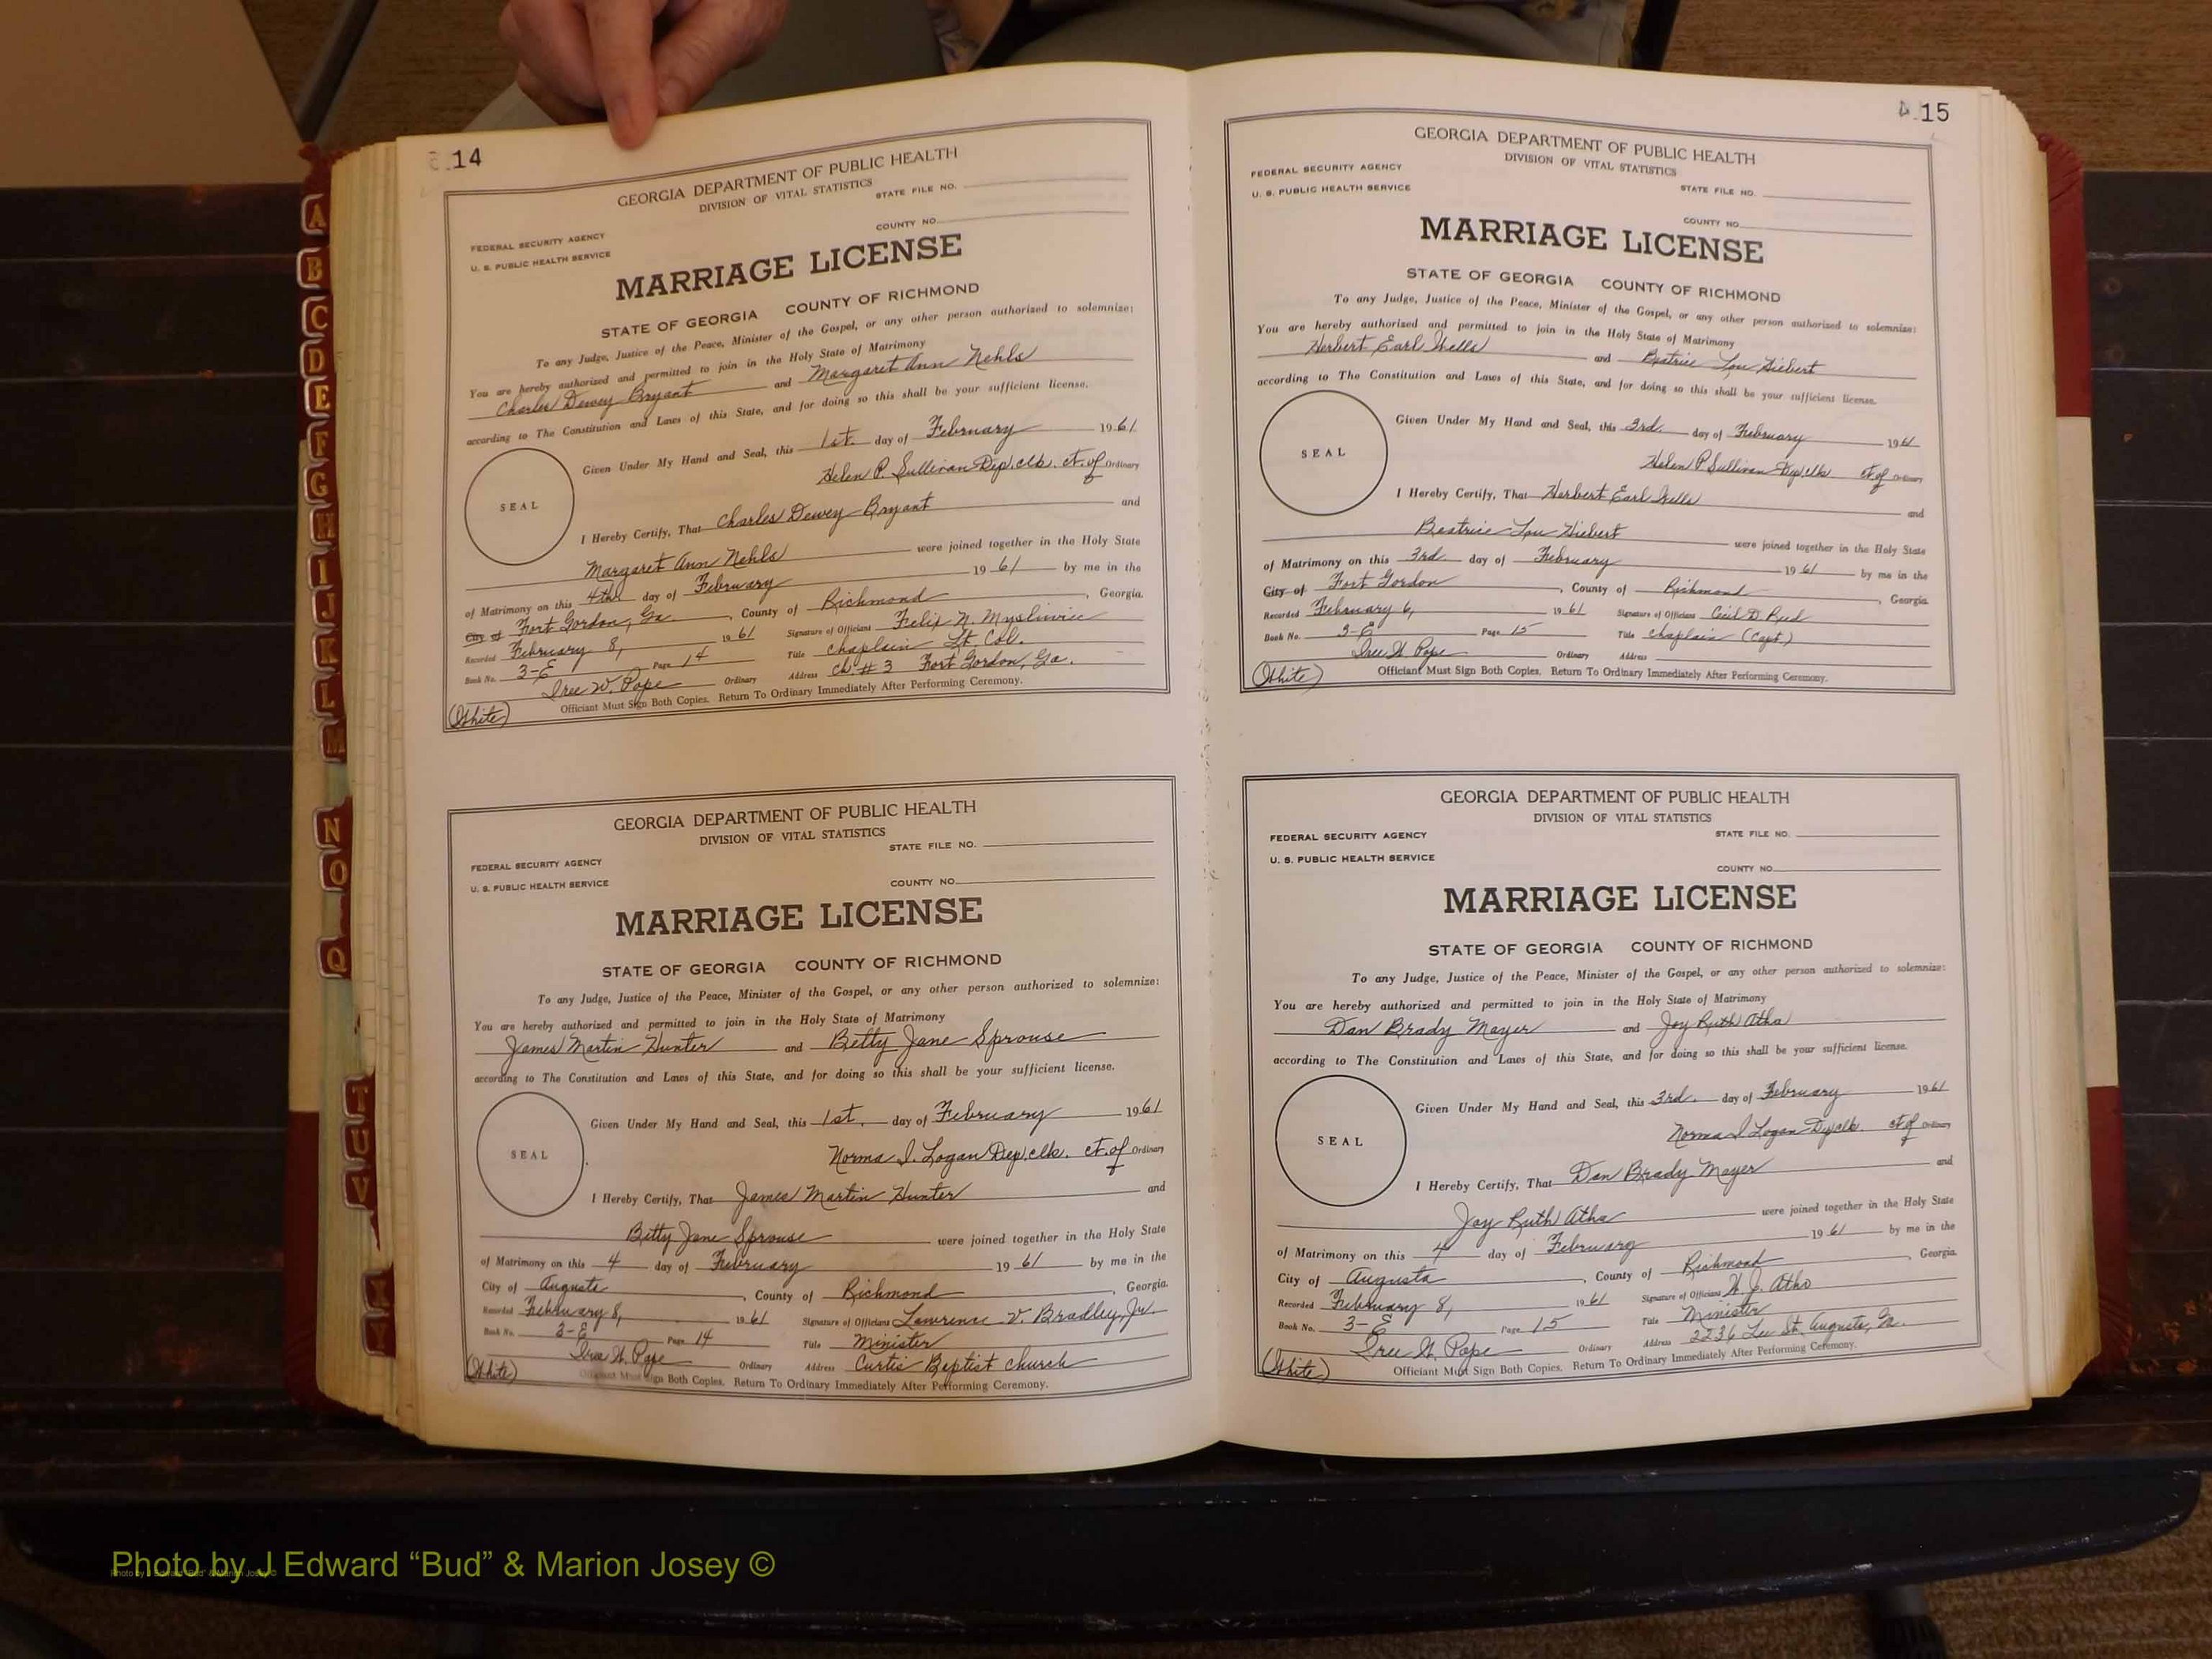 14
GEORGIA DEPARTMENT OF PUBLIC HEALTH
DIVISION OF VITAL STATISTICS
STATE FILE NO.
COUNTY NO.
FEDERAL SECURITY AGENCY
U. S. PUBLIC HEALTH SERVICE
MARRIAGE LICENSE
STATE OF GEORGIA COUNTY OF RICHMOND
To any Judge, Justice of the Peace, Minister of the Gospel, or any other person authorized to solemnize:
You are hereby authorized and permitted to join in the Holy State of Matrimony
Charles Dewey Bryant and Margaret Ann Nehls
according to The Constitution and Laws of this State, and for doing so this shall be your sufficient license.
Given Under My Hand and Seal, this 1st. day of February 1961
SEAL
Helen P. Sullivan Dep. clk. ct. of Ordinary
I Hereby Certify, That Charles Dewey Bryant and
Margaret Ann Nehls were joined together in the Holy State
of Matrimony on this 4th day of February 1961 by me in the
City of Fort Gordon, Ga. , County of Richmond , Georgia.
Recorded February 8, 1961 Signature of Officiant Felix N. Myslivic
Book No. 3-E Page 14 Title Chaplain Lt. Col.
Iree W. Pope Ordinary Address Ch # 3 Fort Gordon, Ga.
(White) Officiant Must Sign Both Copies. Return To Ordinary Immediately After Performing Ceremony.
GEORGIA DEPARTMENT OF PUBLIC HEALTH
DIVISION OF VITAL STATISTICS
STATE FILE NO.
FEDERAL SECURITY AGENCY
U. S. PUBLIC HEALTH SERVICE
COUNTY NO.
MARRIAGE LICENSE
STATE OF GEORGIA COUNTY OF RICHMOND
To any Judge, Justice of the Peace, Minister of the Gospel, or any other person authorized to solemnize:
You are hereby authorized and permitted to join in the Holy State of Matrimony
James Martin Hunter and Betty Jane Sprouse
according to The Constitution and Laws of this State, and for doing so this shall be your sufficient license.
Given Under My Hand and Seal, this 1st. day of February 1961
SEAL
Norma I. Logan Dep. clk. ct. of Ordinary
I Hereby Certify, That James Martin Hunter and
Betty Jane Sprouse were joined together in the Holy State
of Matrimony on this 4 day of February 1961 by me in the
City of Augusta , County of Richmond , Georgia.
Recorded February 8, 1961 Signature of Officiant Lawrence V. Bradley, Jr.
Book No. 3-E Page 14 Title Minister
Iree W. Pope Ordinary Address Curtis Baptist Church
(White) Officiant Must Sign Both Copies. Return To Ordinary Immediately After Performing Ceremony.
15
GEORGIA DEPARTMENT OF PUBLIC HEALTH
DIVISION OF VITAL STATISTICS
FEDERAL SECURITY AGENCY
U. S. PUBLIC HEALTH SERVICE
STATE FILE NO.
COUNTY NO.
MARRIAGE LICENSE
STATE OF GEORGIA COUNTY OF RICHMOND
To any Judge, Justice of the Peace, Minister of the Gospel, or any other person authorized to solemnize:
You are hereby authorized and permitted to join in the Holy State of Matrimony
Herbert Earl Wells and Beatrice Lou Hiebert
according to The Constitution and Laws of this State, and for doing so this shall be your sufficient license.
Given Under My Hand and Seal, this 3rd. day of February 1961
SEAL
Helen P Sullivan Dep clk ct of Ordinary
I Hereby Certify, That Herbert Earl Wells and
Beatrice Lou Hiebert were joined together in the Holy State
of Matrimony on this 3rd day of February 1961 by me in the
City of Fort Gordon , County of Richmond , Georgia
Recorded February 6, 1961 Signature of Officiant Cecil D. Reed
Book No. 3-E Page 15 Title Chaplain (Capt.)
Iree W. Pope Ordinary Address
(White) Officiant Must Sign Both Copies. Return To Ordinary Immediately After Performing Ceremony.
GEORGIA DEPARTMENT OF PUBLIC HEALTH
DIVISION OF VITAL STATISTICS
FEDERAL SECURITY AGENCY
STATE FILE NO.
U. S. PUBLIC HEALTH SERVICE
COUNTY NO.
MARRIAGE LICENSE
STATE OF GEORGIA COUNTY OF RICHMOND
To any Judge, Justice of the Peace, Minister of the Gospel, or any other person authorized to solemnize:
You are hereby authorized and permitted to join in the Holy State of Matrimony
Dan Brady Mayer and Joy Ruth Atha
according to The Constitution and Laws of this State, and for doing so this shall be your sufficient license.
Given Under My Hand and Seal, this 3rd. day of February 1961
SEAL
Norma I Logan Dep clk. ct of Ordinary
I Hereby Certify, That Dan Brady Mayer and
Joy Ruth Atha were joined together in the Holy State
of Matrimony on this 4 day of February 1961 by me in the
City of Augusta , County of Richmond , Georgia
Recorded February 8, 1961 Signature of Officiant
Book No. 3-E Page 15 Title Minister
Iree W. Pope Ordinary Address 2236 Lee St. Augusta, Ga.
(White) Officiant Must Sign Both Copies. Return To Ordinary Immediately After Performing Ceremony.
A
B
C
D
E
F
G
H
I
J
K
L
M
N
O
Q
T
U
V
Y
Photo by J Edward “Bud” & Marion Josey ©
Photo by J Edward “Bud” & Marion Josey ©